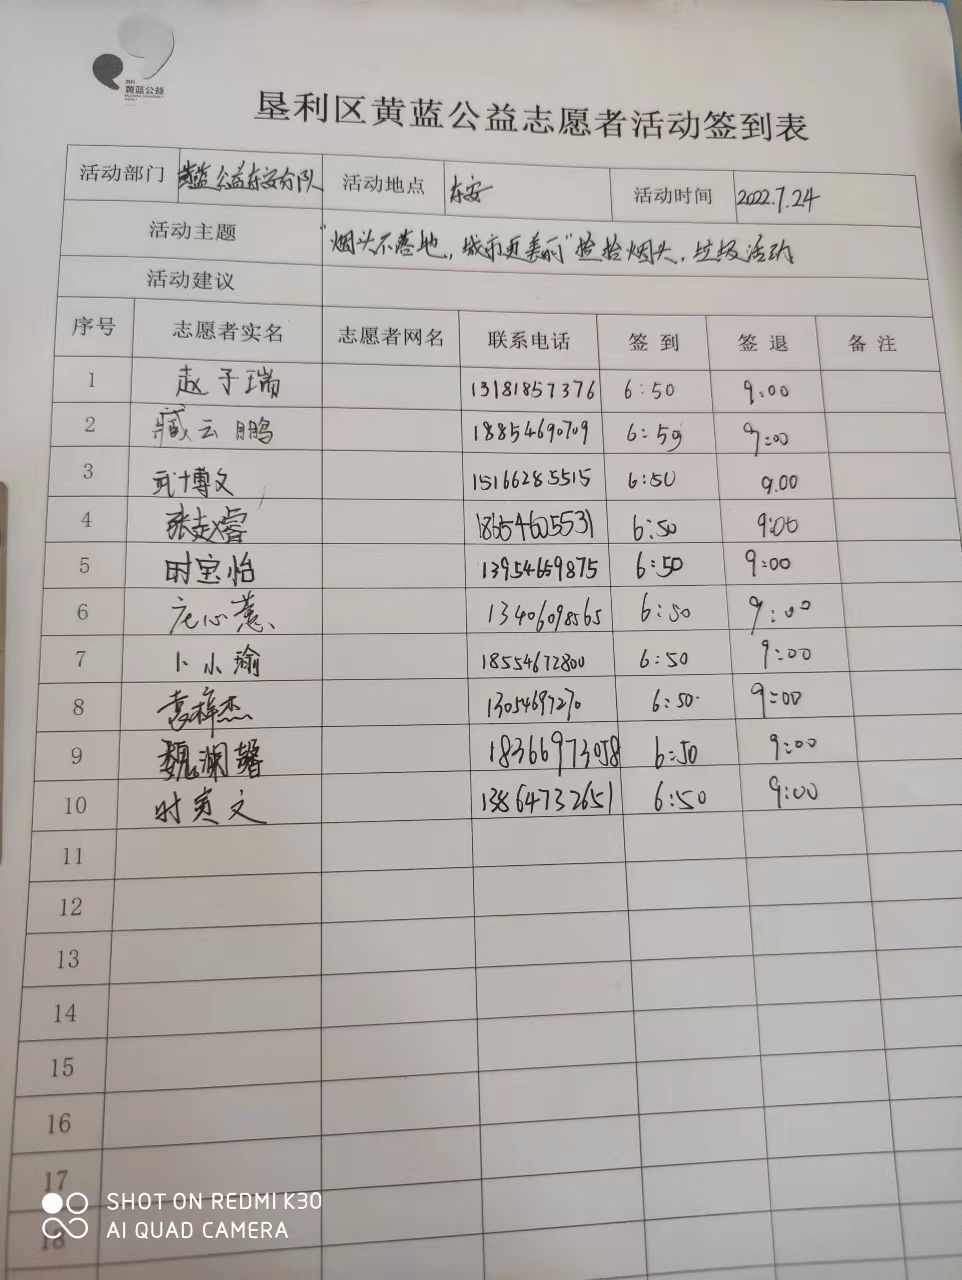 黄蓝公益
垦利区黄蓝公益志愿者活动签到表
活动部门 黄蓝公益东安分队 活动地点 东安 活动时间 2022.7.24
活动主题 "烟头不落地,城市更美丽"捡拾烟头,垃圾活动
活动建议
序号 志愿者实名 志愿者网名 联系电话 签到 签退 备注
1 赵子瑞 13181857376 6:50 9:00
2 臧云鹏 18854690709 6:50 9:00
3 武博文 15166285515 6:50 9.00
4 张赵睿 18654605531 6:50 9:00
5 时宝怡 13954659875 6:50 9:00
6 庀心薏 13406098565 6:50 9:00
7 卜小瑜 18554672800 6:50 9:00
8 袁梓杰 13054697270 6:50 9:00
9 魏澜馨 18366973058 6:50 9:00
10 时寅文 13864732651 6:50 9:00
11
12
13
14
15
16
17
18
SHOT ON REDMI K30
AI QUAD CAMERA